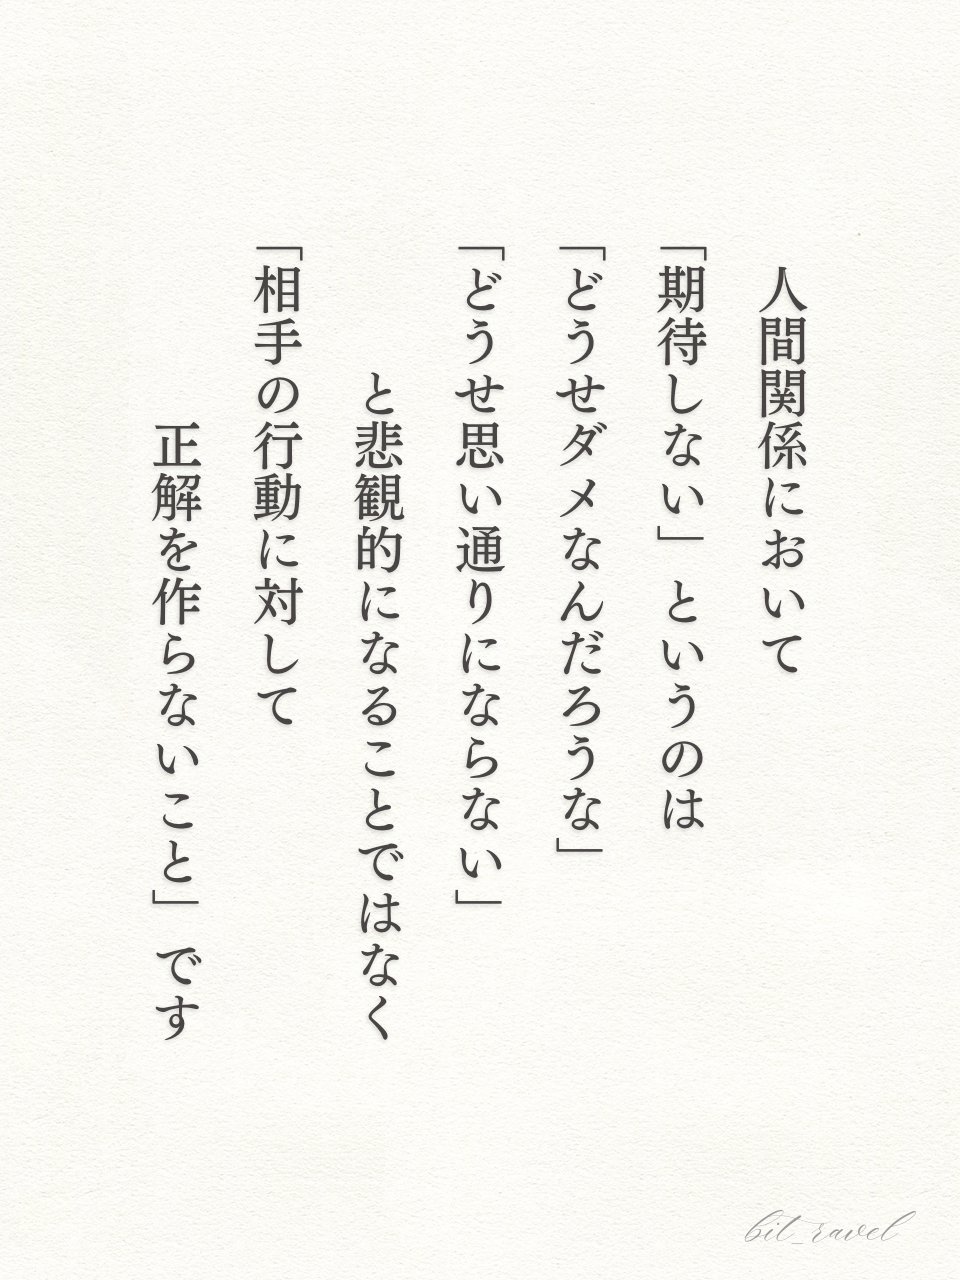 人間関係において
「期待しない」というのは
「どうせダメなんだろうな」
「どうせ思い通りにならない」
と悲観的になることではなく
「相手の行動に対して
正解を作らないこと」です
bit_ravel